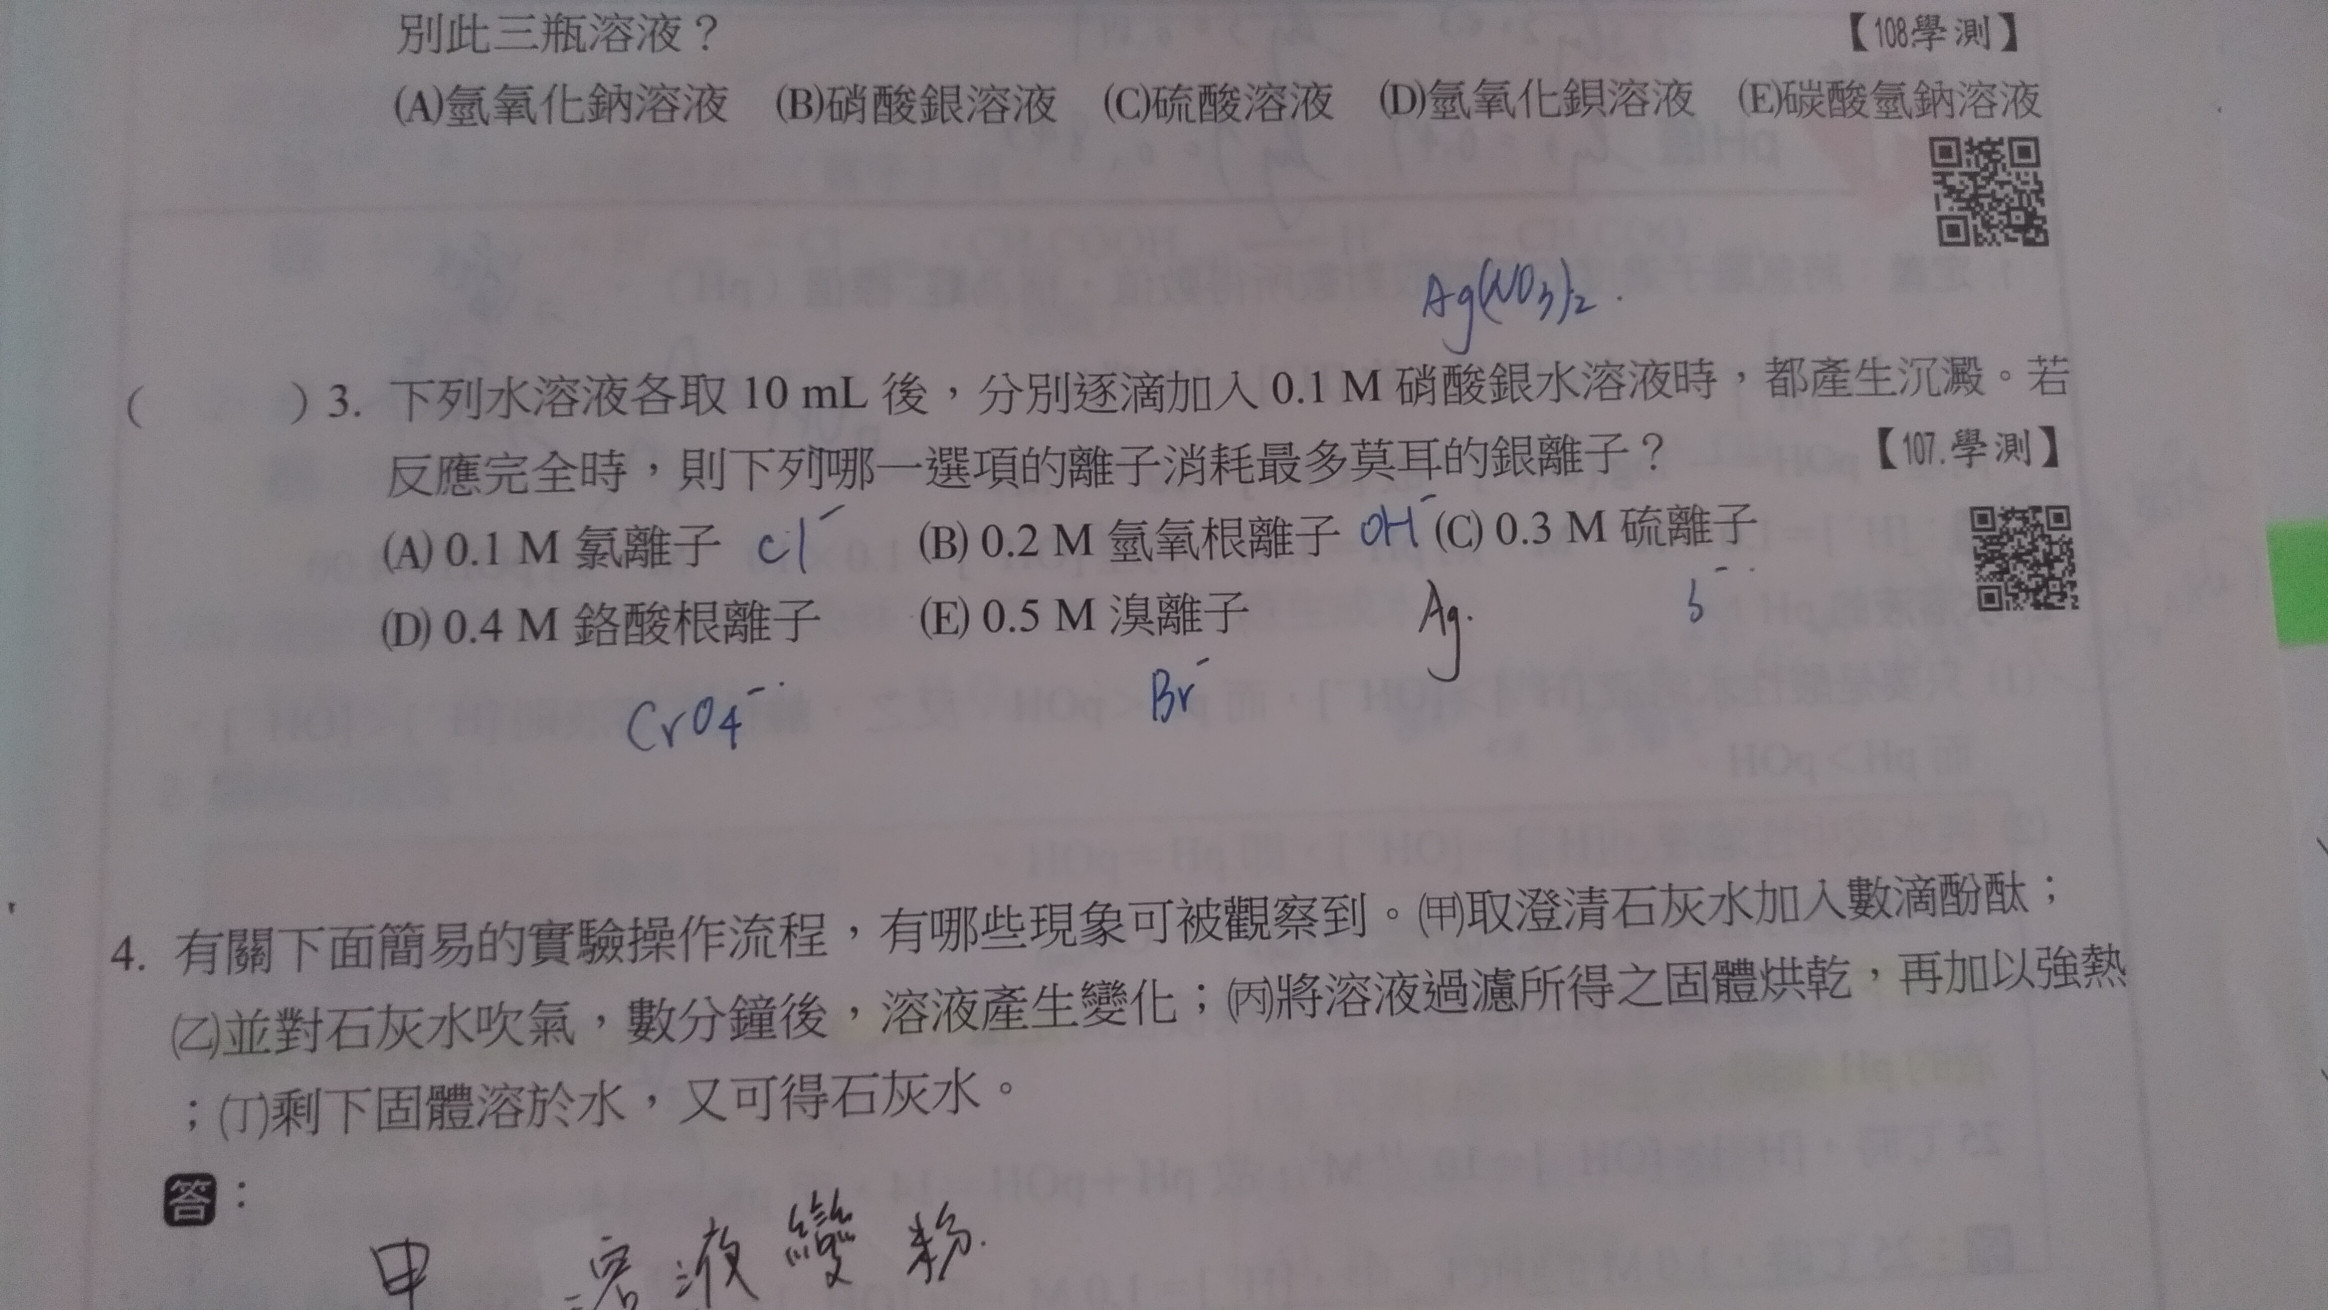 別此三瓶溶液？ 【108學測】
(A)氫氧化鈉溶液 (B)硝酸銀溶液 (C)硫酸溶液 (D)氫氧化鋇溶液 (E)碳酸氫鈉溶液
Ag(NO3)2.
( )3. 下列水溶液各取 10 mL 後，分別逐滴加入 0.1 M 硝酸銀水溶液時，都產生沉澱。若
反應完全時，則下列哪一選項的離子消耗最多莫耳的銀離子？ 【107.學測】
(A) 0.1 M 氯離子 Cl⁻ (B) 0.2 M 氫氧根離子 OH⁻ (C) 0.3 M 硫離子
(D) 0.4 M 鉻酸根離子 (E) 0.5 M 溴離子 Ag.
CrO4⁻ Br⁻
4. 有關下面簡易的實驗操作流程，有哪些現象可被觀察到。(甲)取澄清石灰水加入數滴酚酞；
(乙)並對石灰水吹氣，數分鐘後，溶液產生變化；(丙)將溶液過濾所得之固體烘乾，再加以強熱
；(丁)剩下固體溶於水，又可得石灰水。
答：
甲 溶液變粉.